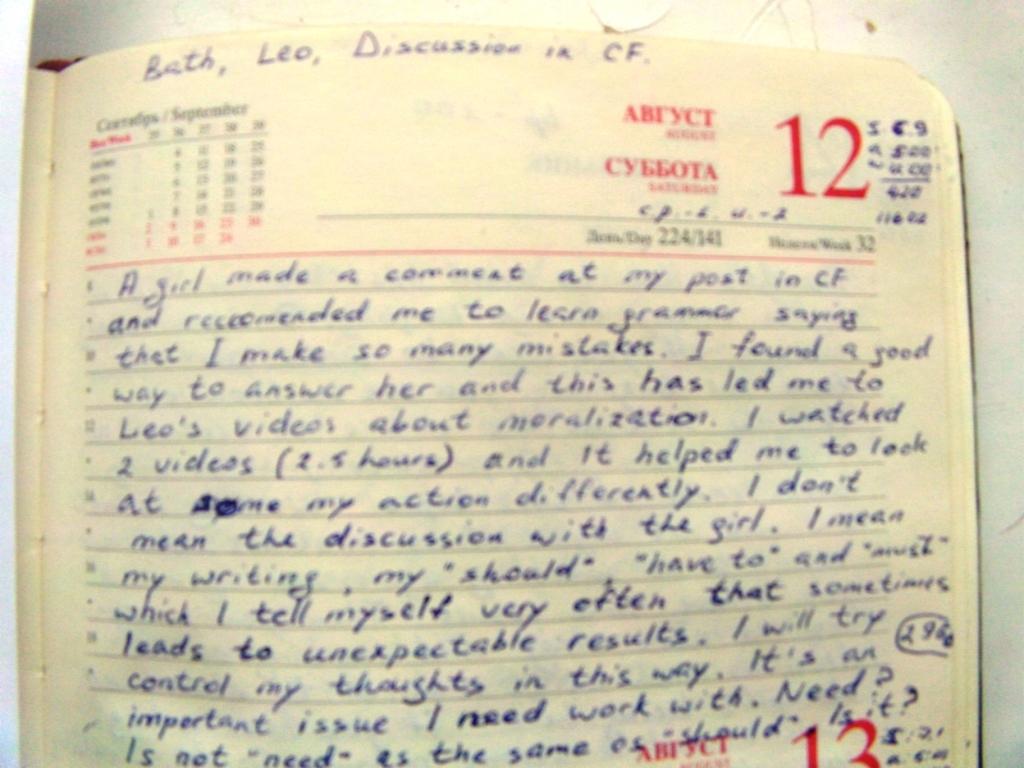 Bath, Leo, Discussion in CF.
Сентябрь / September
АВГУСТ
AUGUST
12
СУББОТА
SATURDAY
День/Day 224/141
Неделя/Week 32
A girl made a comment at my post in CF
and reccomended me to learn grammar saying
that I make so many mistakes. I found a good
way to answer her and this has led me to
Leo's videos about moralization. I watched
2 videos (2.5 hours) and It helped me to look
at some my action differently. I don't
mean the discussion with the girl. I mean
my writing, my "should", "have to" and "must"
which I tell myself very often that sometimes
leads to unexpectable results. I will try
control my thoughts in this way. It's an
important issue I need work with. Need?
Is not "need" as the same as "should". Is it?
АВГУСТ
13